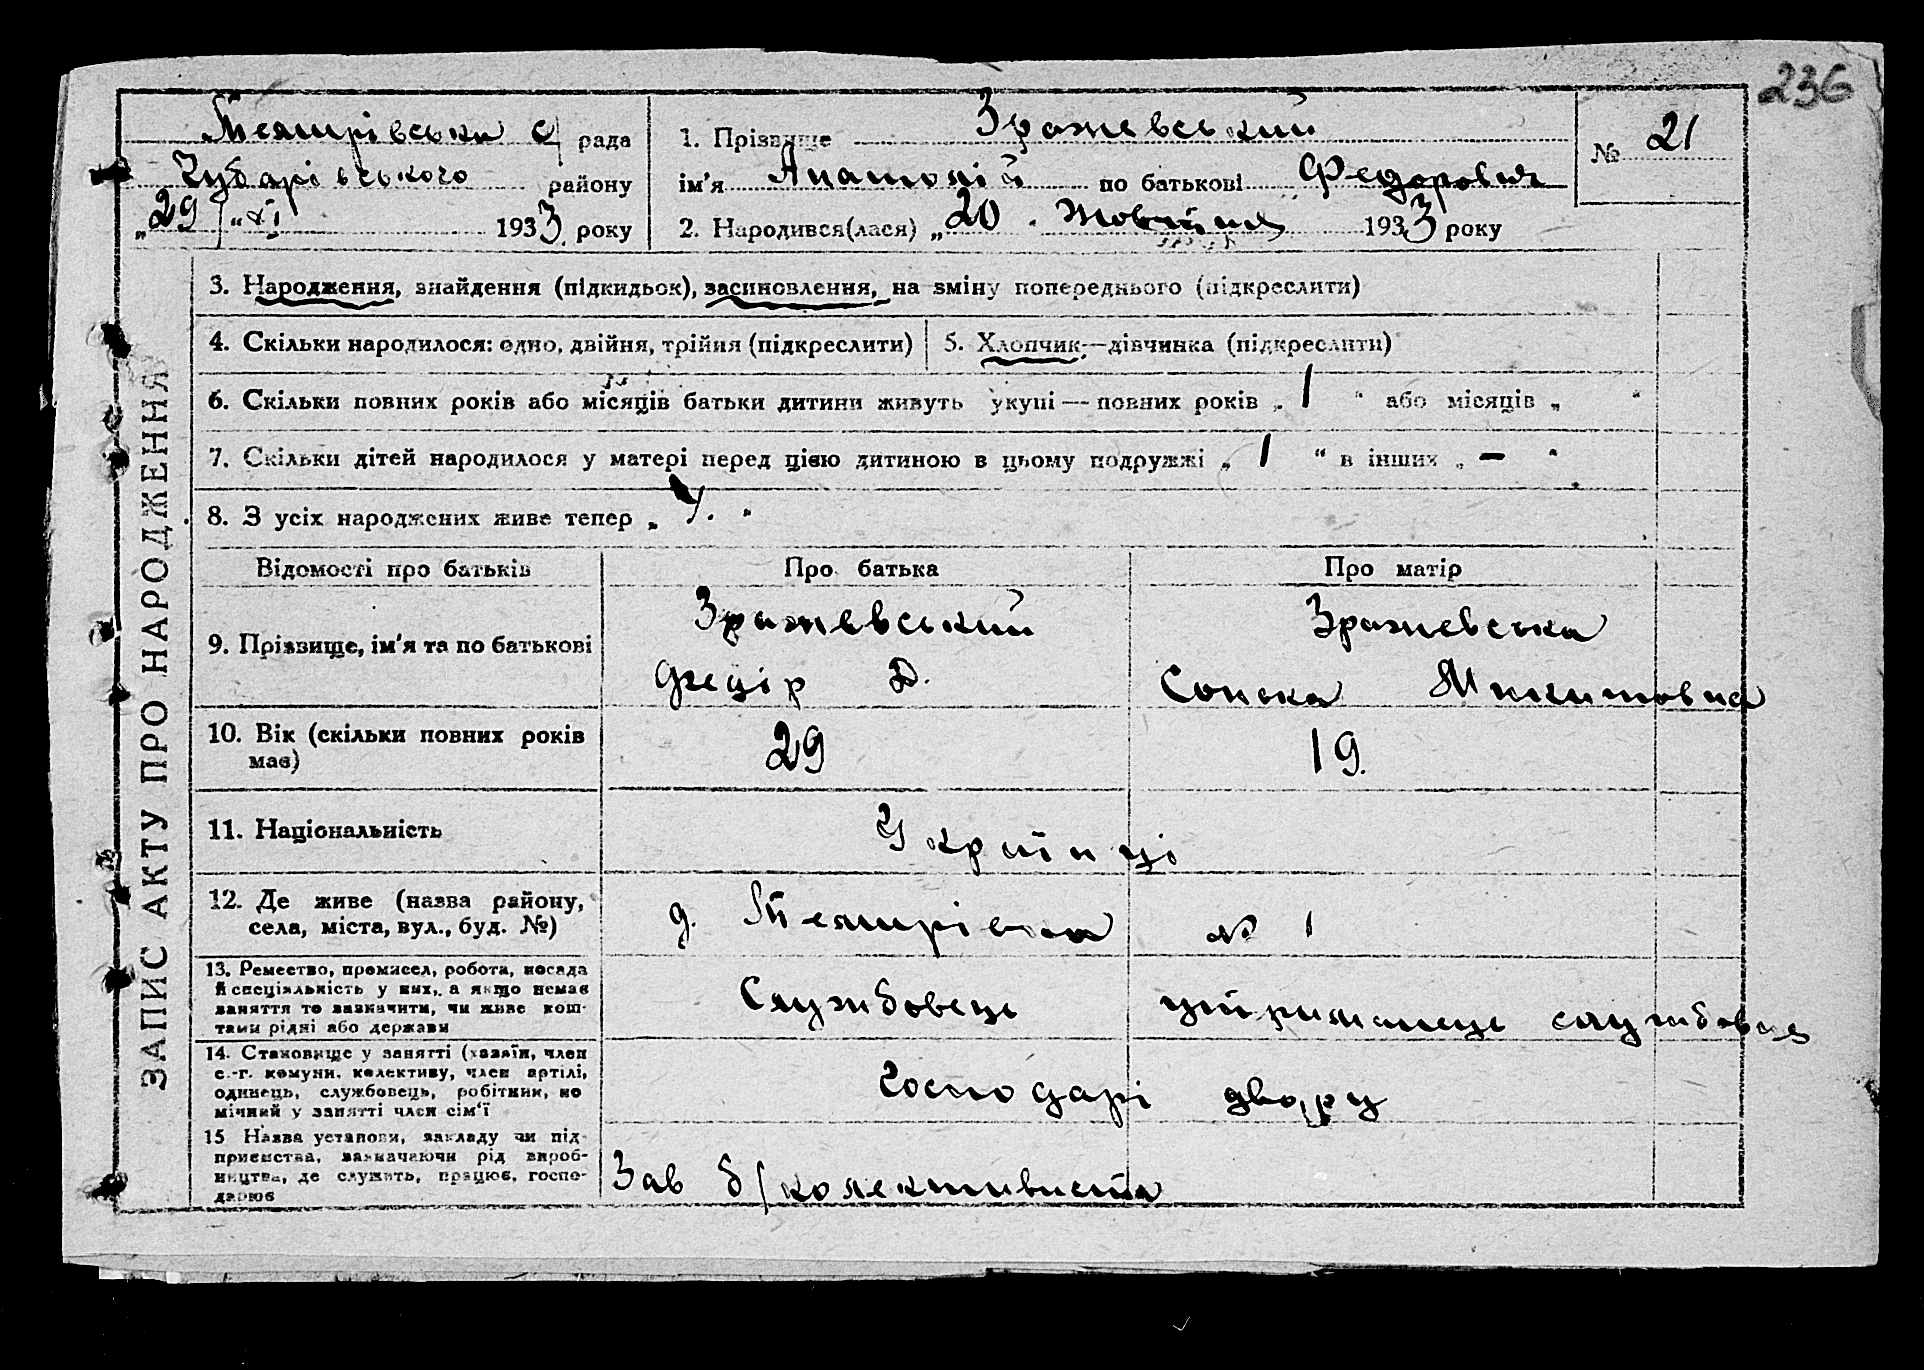 236
Темирівська с/рада
Чубарівського району
„29 / “ XI 1933 року
1. Прізвище Зражевський
ім'я Анатолій по батькові Федорович
2. Народився(лася) „20 . Жовтня 1933 року
№ 21
ЗАПИС АКТУ ПРО НАРОДЖЕННЯ
3. Народження, знайдення (підкидьок), засиновлення, на зміну попереднього (підкреслити)
4. Скільки народилося: одно, двійня, трійня (підкреслити) 5. Хлопчик—дівчинка (підкреслити)
6. Скільки повних років або місяців батьки дитини живуть укупі — повних років „ 1 “ або місяців „ “
7. Скільки дітей народилося у матері перед цією дитиною в цьому подружжі „ 1 “ в інших „ – “
8. З усіх народжених живе тепер „ “
Відомості про батьків Про батька Про матір
9. Прізвище, ім'я та по батькові Зражевський Зражевська
Федір Д. Сонька Микитовна
10. Вік (скільки повних років має) 29 19.
11. Національність Українці
12. Де живе (назва району, села, міста, вул., буд. №) д. Темирівка № 1
13. Ремество, промисел, робота, посада й спеціяльність у них, а якщо немає заняття то зазначити, чи живе коштами рідні або держави Службовець утриманець службовця
14. Становище у занятті (хазяїн, член с.-г. комуни, колективу, член артілі, одинець, службовець, робітник, помічний у занятті член сім'ї Господарі двору
15 Назва установи, закладу чи підприємства, зазначаючи рід виробництва, де служить, працює, господарює Зав б/колективиста